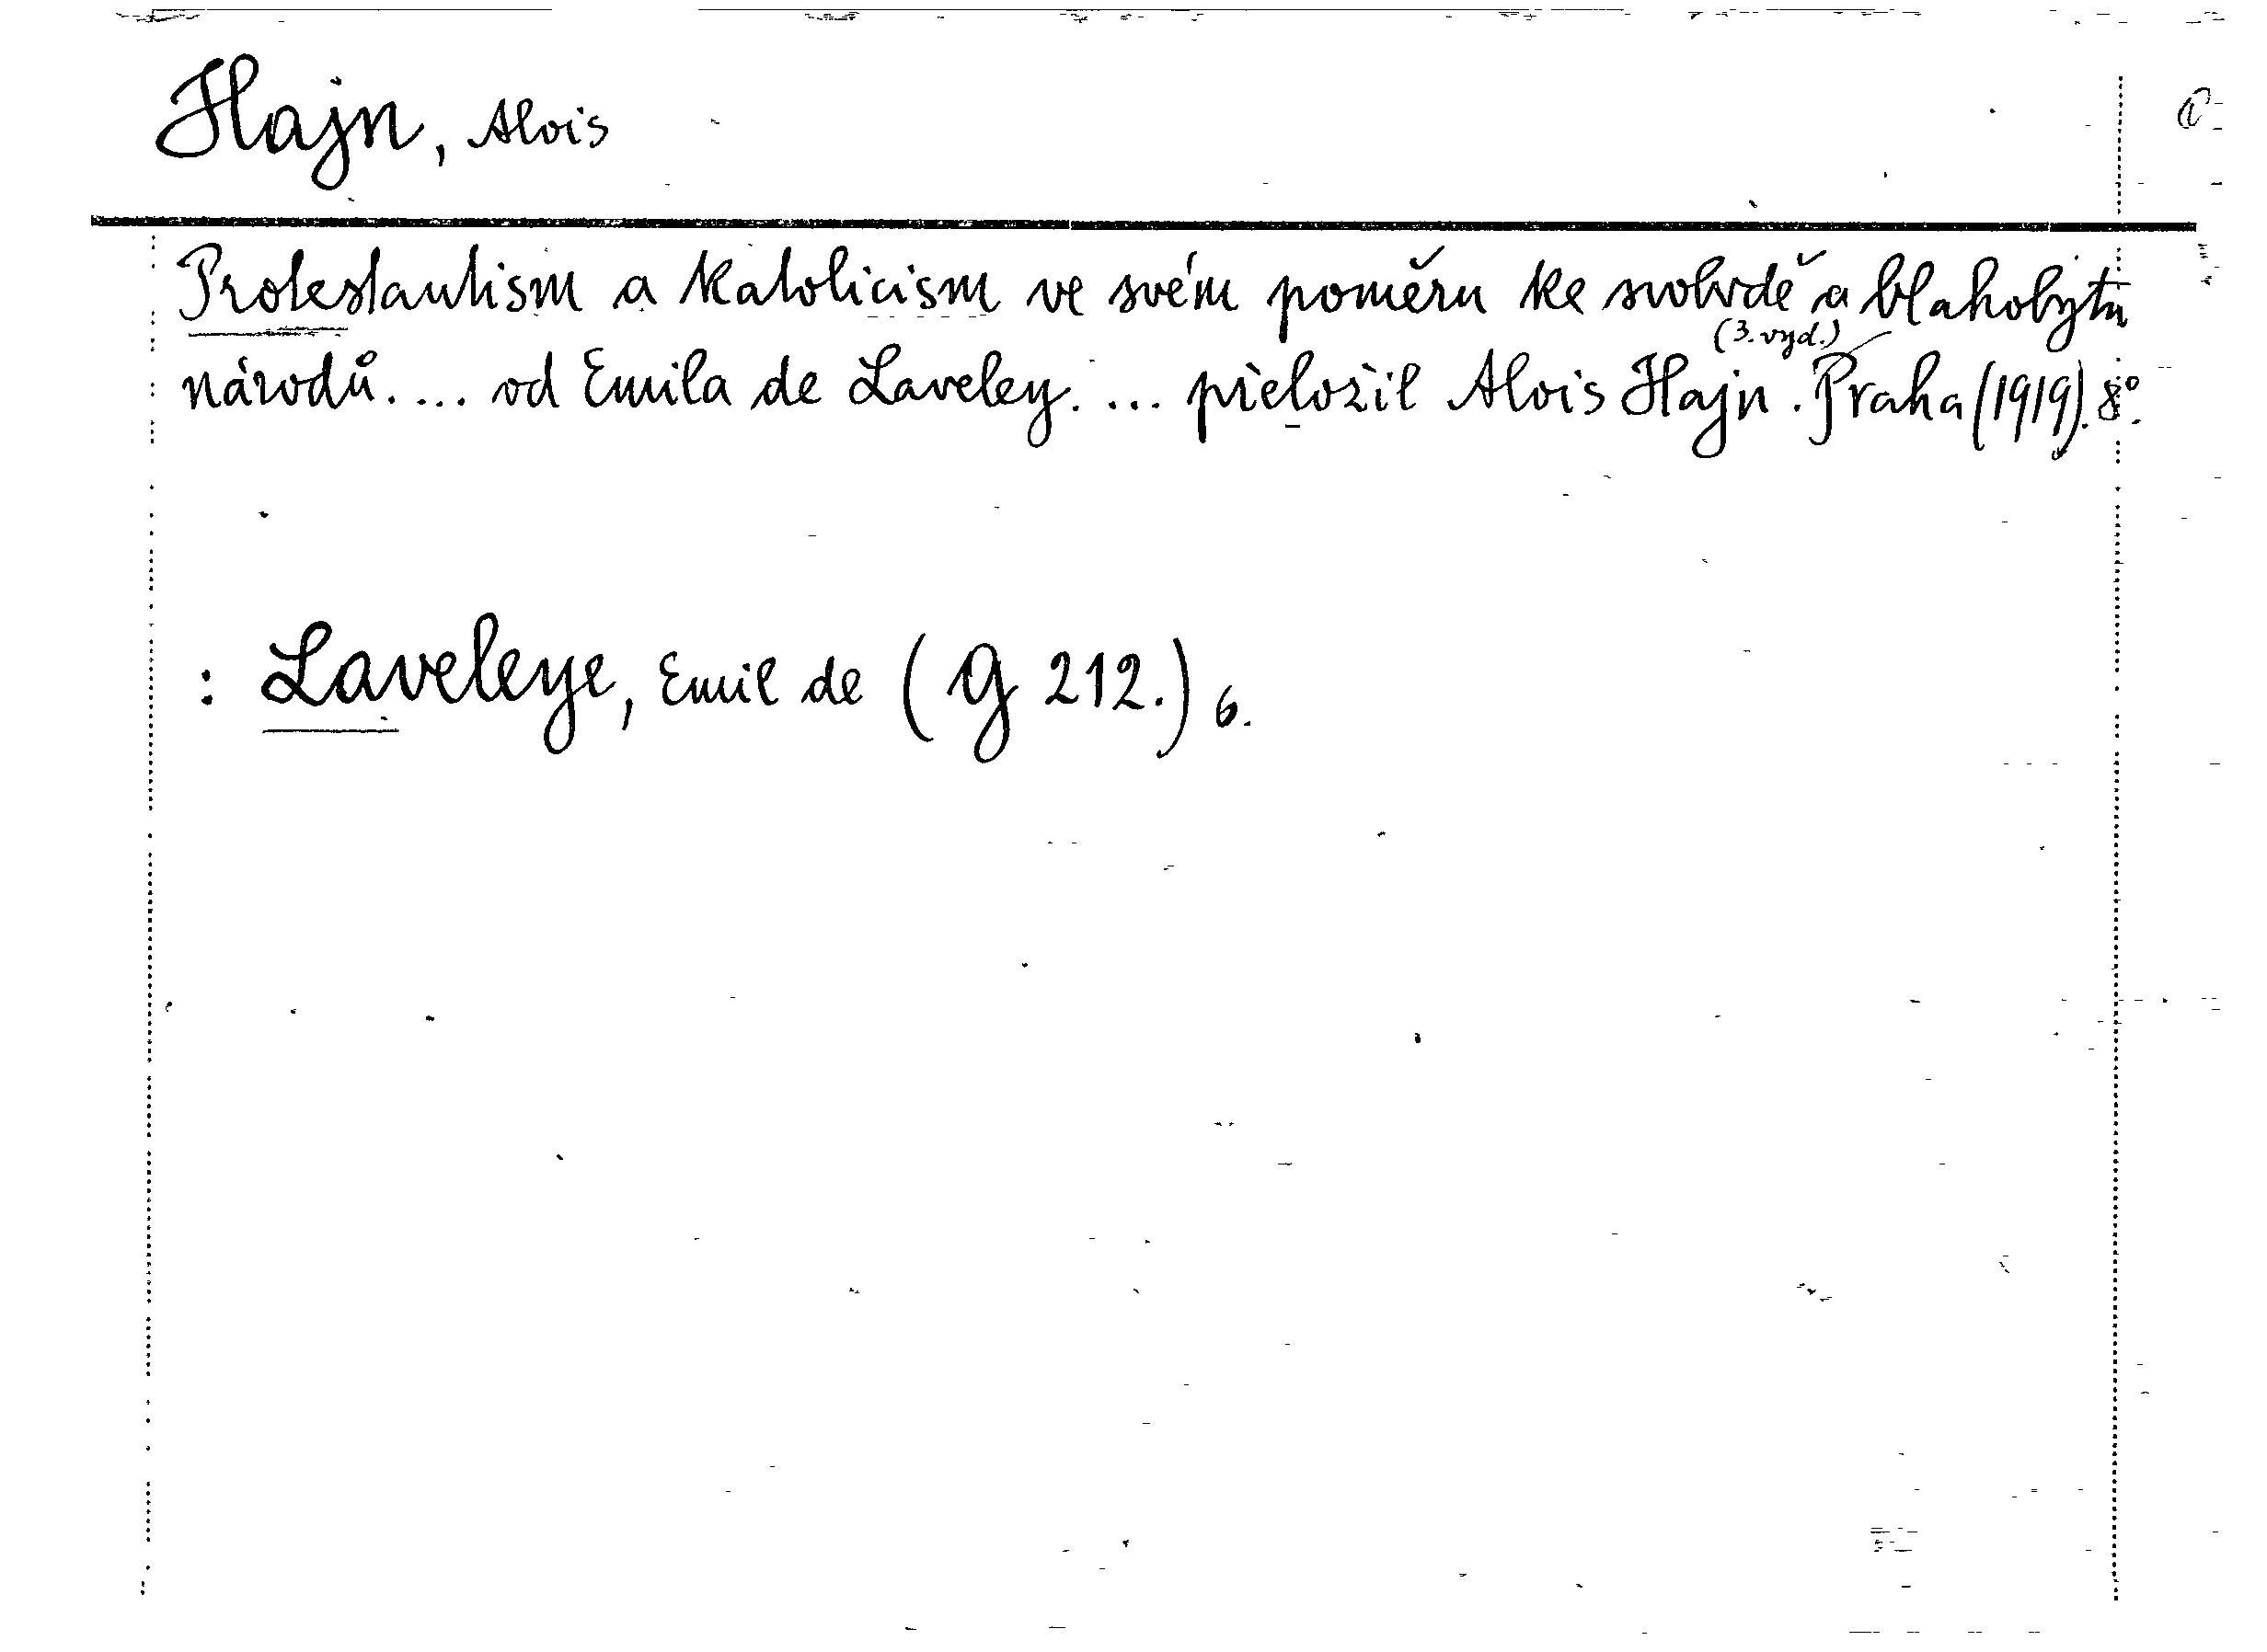 Hajn, Alois
Protestantism a katolicism ve svém poměru ke svobodě a blahobytu
(3. vyd.)
národů. ... od Emila de Laveley. ... přeložil Alois Hajn. Praha (1919). 8°.
: Laveleye, Emil de (G 212.) 6.